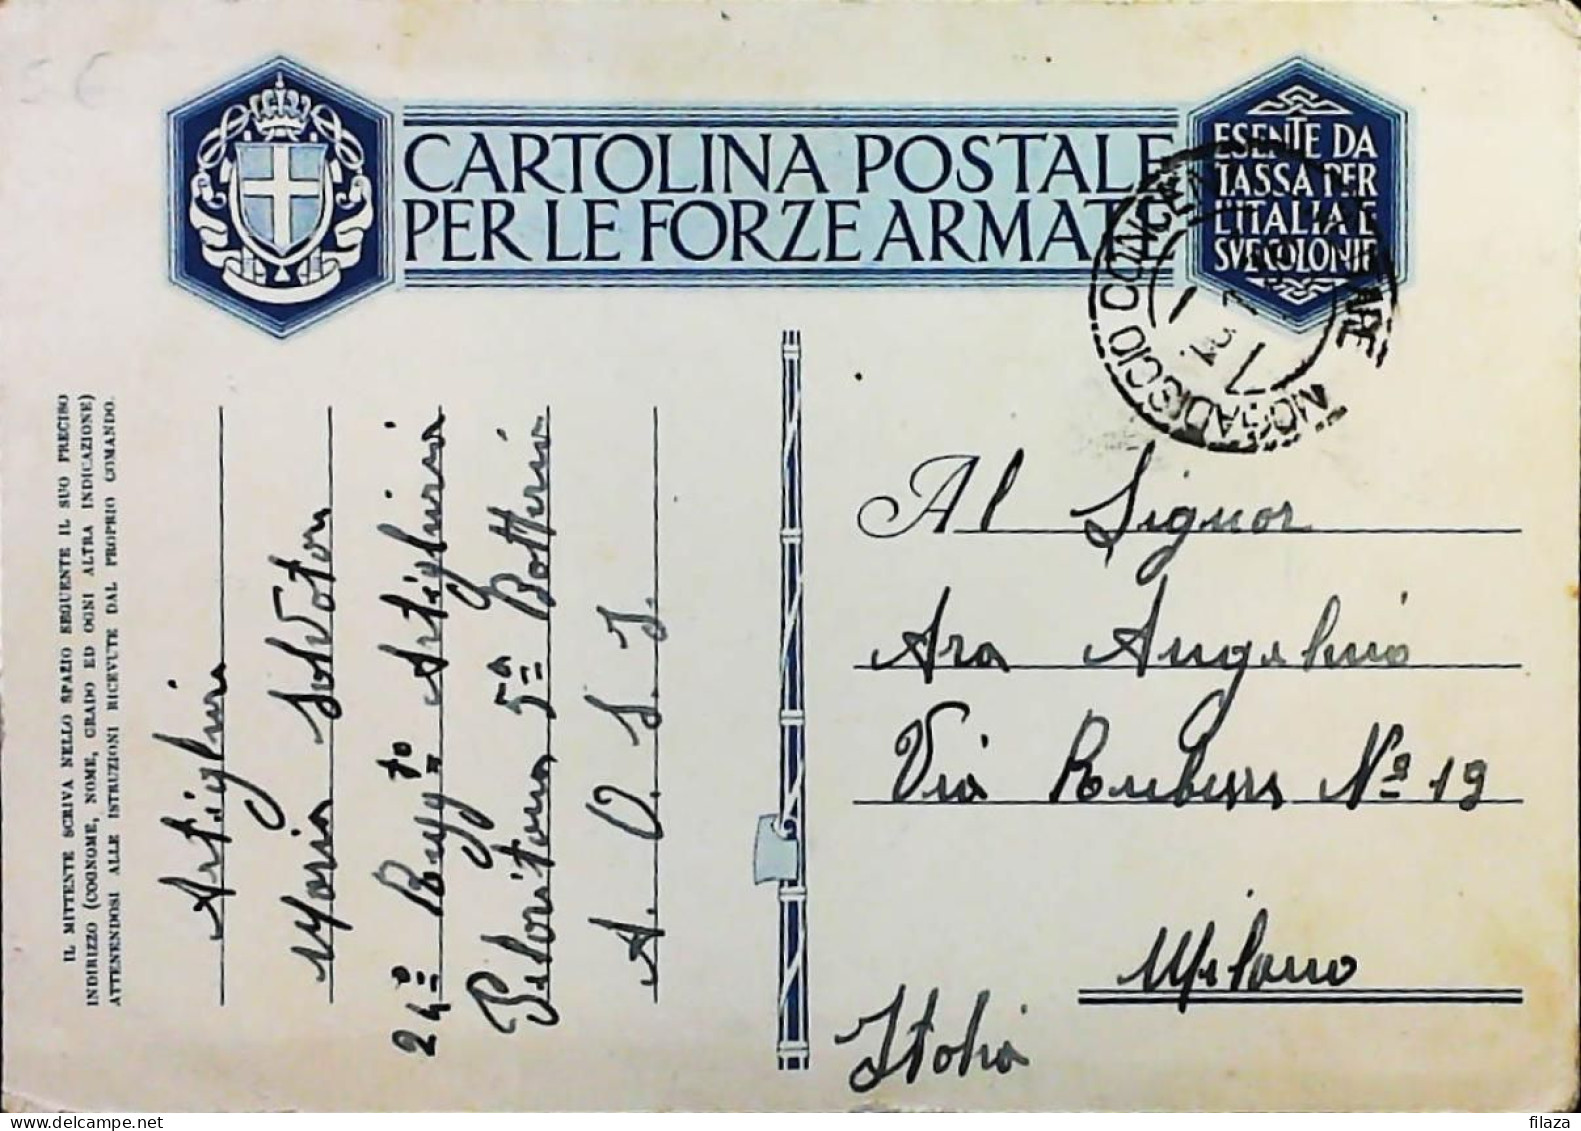 CARTOLINA POSTALE
PER LE FORZE ARMATE
ESENTE DA
TASSA PER
L'ITALIA E
SVE COLONIE
MOGADISCIO CONCENT
IL MITTENTE SCRIVA NELLO SPAZIO SEGUENTE IL SUO PRECISO
INDIRIZZO (COGNOME, NOME, GRADO ED OGNI ALTRA INDICAZIONE)
ATTENENDOSI ALLE ISTRUZIONI RICEVUTE DAL PROPRIO COMANDO.
Artiglier
Mario Salvator
24º Regg.to Artiglieria
Peloritana 5ª Batteria
A. O. S. I.
Al Signor
Ara Angelino
Via Rubens Nº 19
Milano
Italia
filaza